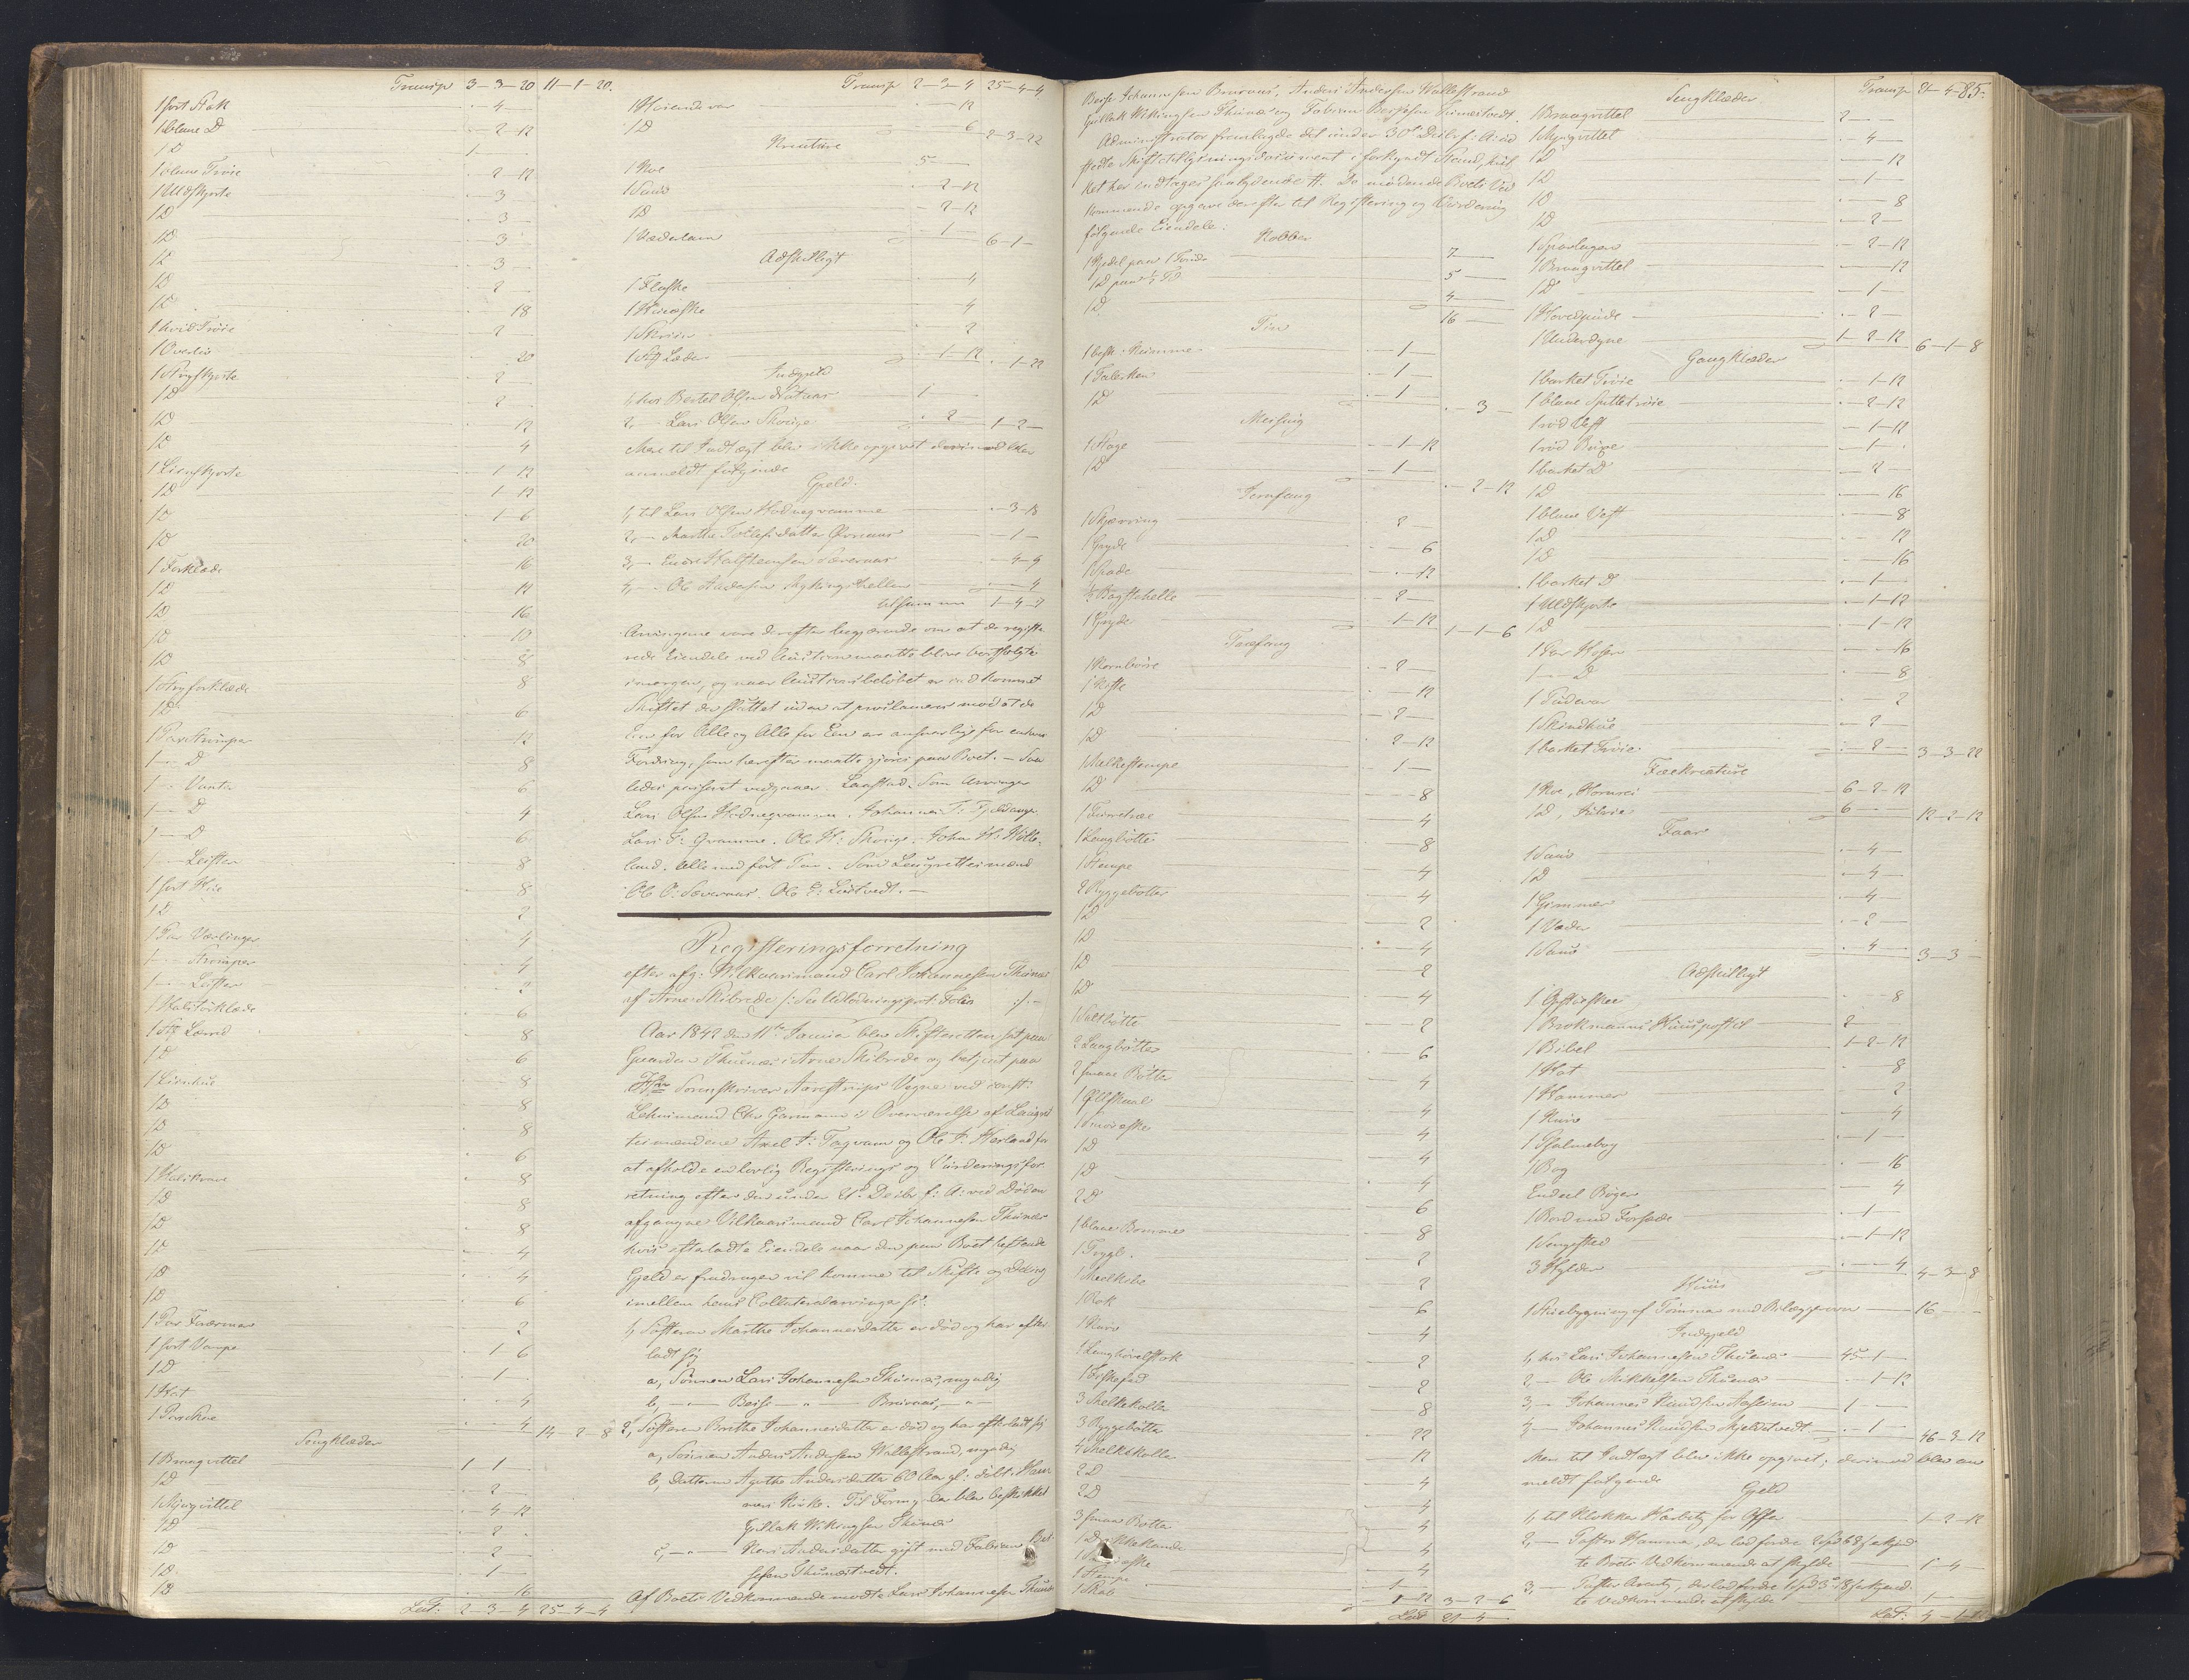 Transp 3-3-20 11-1-20.
1 sort Stak - 4 -
1 blaae D - 2-12
1 D 1 -
1 blaae Trøie - 2-12
1 Uldskjorte - 3 -
1 D - 3 -
1 D 3 -
1 D - 3 -
1 D - 2 -
1 D 18
1 hvid Trøie 2
1 Overliv - 20
1 Strieskjorte - 2
1 D 2
1 D 12
1 D 4
1 Linskjorte 1-12
1 D 1-12
1 D 1-6
1 D 20
1 Forklæde 16
1 D 12
1 D 16
1 D 10
1 D 8
1 Strieforklæde 8
1 D 6
1 Par Strømper 12
1 - D 8
1 - Vanter 6
1 - D 4
1 - D 6
1 - Leister 8
1 sort Hue 8
1 D 2
1 Par Vævlinger 4
1 - Strømper 4
1 - Leister 2
1 Halstørklæde 6
1 St Lærred 8
1 D 6
1 Linhue 8
1 D 8
1 D 8
1 D 6
1 Halskrave 8
1 D 8
1 D 8
1 D 4
1 D 4
1 D 6
1 Par Forærmer 2
1 sort 1-6
1 D 1 -
1 Hat 4
1 4 14-2-8
Sengklæder
1 Braagvittel 1-1-
1 D 2 -
1 Skjugvittel 4-12
1 D 2 -
1 D 2 -
1 D 1 -
1 D 16
Lat: 2-3-4 25-4-4
Transp 2-2-4 25-4-4
1 Hovendevar 12
1 D 6 2-3-22
Kreature
1 Koe 5 -
1 Sauo 2-12
1 D 2-12
1 Væderlam 1 - 6-1-
Adskilligt
1 Flaske 4
1 4
1 Skrin 2
1 St Læder 1-12 1-22
Indgjeld
1, hos Bertel Olsen 1 -
2, - Lars Olsen Skorige 2 - 1-2-
Mere til Indtægt blev ikke opgivet derimod blev
anmeldt følgende
Gjeld.
1, til Lars Olsen Kodnegvamme - 3-18
2, - Marthe Tollefsdatter - 1 -
3, - Endre Halsteensen Sævernas - 4-9
4, - Ole Andersen - 4
tilsammen 1-4-7
Arvingerne vare derefter begjærende om at de registe-
rede Eiendele ved Auction maatte blive bortsolgte
imorgen, og naar Auctionsbeløbet er indkommet
Skiftet da sluttet uden at proclameres mod at de
Een for Alle og Alle for Een ere ansvarlige for enhver
Fordring, som herefter maatte gjøres paa Boet. - Saa
ledes passeret vidgaaer. Laastad. Som Arvinger
Lars Olsen Kodnegvamme. Johannes T: Fjeldanger
Lars S: Gramme. Ole H: Skorige. Johan H: Helle-
land. Alle med ført Pen. Som Laugrettesmænd
Ole O: Sævernas. Ole P: Lustvedt. -
Registeringsforretning
efter afg: Wilkaarsmand Carl Johannessen Thunæs
af Arne Skibrede /: See Udlodningsprot. Folio :/. -
Aar 1842 den 11te Januar blev Skifteretten sat paa
Gaarden Thunæs i Arne Skibrede og betjent paa
Hr Sorenskriver Aarestrups Vegne ved const:
Lehnsmand Chr Garmann i Overværelse af Laugret
tesmændene Axel A: Tagvam og Ole P: Herland for
at afholde en lovlig Registerings og Vurderingsfor
retning efter den under 21 Decbr f: A: ved Døden
afgangne Vilkaarsmand Carl Johannessen Thunæs
hvis efterladte Eiendele naar den paa Boet heftende
Gjeld er fradragen vil komme til Skifte og Deling
imellem hans Collateralarvinger s:
1, Søsteren Marthe Johannesdatter er død og har efter
ladt sig
a, Sønnen Lars Johannessen Thunæs, myndig
b, - Beise - " - Bruraas, - " -
2, Søsteren Brithe Johannesdatter er død og har efterladt sig
a, Sønnen Anders Andersen Wallestrand, myndig
b, Datteren Agathe Andersdatter 60 Aar gl: døbt i Ham
mers Kirke. Til Formynder blev beskikket
Gullak Wikingsen Thunæs
c, - " - Kari Andersdatter gift med Fabian Ber
sesen Thunæstvedt.
Af Boets Vedkommende mødte Lars Johannessen Thunæs
Beise Johannessen Bruraas, Anders Andersen Wallestrand
Gullak Wikingsen Thunæs og Fabian Bersesen Thunæstvedt.
Administrator fremlagde det under 30te Decbr f: A: ud
stedte Skiftetillysningsdocument i forkyndt Stand, hvil
ket her indtages saalydende #. De mødende Boets Ved
kommende opgave derefter til Registering og Vurdering
følgende Eiendele:
Kobber
1 Kjedel paa 1 Tønde 7 -
1 D paa ½ Td 5 -
1 D 4 - 16 -
Tin
1 besk: Kumme - 1 -
1 Talerken - 1 -
1 D - 1 - - 3 -
Messing
1 Stage - 1-12
1 D - 1 - - 2-12
Jernfang
1 Skjærring 2 -
1 Gryde 6
1 Spade 12
½ Bagstehelle 2 -
1 Gryde 1-12 1-1-6
Træfang
1 Kornbøre - 2 -
1 Kiste - 12
1 D - 2 -
1 D - 2-12
1 Malkestampe - 1 -
1 D 8
1 4
1 Laugbøtte 8
1 Stampe 4
2 Ryggebøtter 4
1 D 2
1 D 4
1 D 2
1 D 4
1 Saltbøtte 2
2 Laugbøtter 6
2 smaae Bøtter 4
1 Ølskaal 4
1 Smørøske 4
1 D 4
1 D 4
2 D 6
1 blaae Bomme 8
1 Traggl. 2
1 Meelkiste 2
1 Rok 6
1 Kurv 4
1 2
1 2
3 Melkekoller 8
3 Ryggebøtter 22
4 Melkekoller 12
2 D 4
2 D 4
3 smaae Bøtter 4
1 Drikkekande 4
1 Smørøske 4
1 Stampe 1 -
1 Skab 1-12 3-2-6
Lat 21-4-
Transp 21-4- 85.
Sengklæder
1 Braagvittel 2 - -
1 Skjugvittel - 4 -
1 D - 12
1 D - 1 -
1 D - 8
1 D - 2 -
1 Sparlagen - 2-12
1 Braagvittel 12
1 D - 1 -
1 Hovedpude - 2 -
1 Underdyne 1-2-12 6-1-8
Gangklæder
1 barket Trøie - 1-12
1 blaae Spittetrøie - 2-12
1 rød Vest - 1-12
1 rød Buxe - 1 -
1 barket D - 2 -
1 D 16
1 blaae Vest 8
1 D 12
1 D 16
1 barket D - 1 -
1 Uldskjorte - 1-12
1 D - 1-12
1 Par Hoser 16
1 - D 8
1 Pudevar 2
1 Skindhue - 2 -
1 barket Trøie - 2 - 3-3-22
Fæekreature
1 Koe, Hornrei 6-2-12
1 D, 6 - 12-2-12
Faar
1 Sauo - 4 -
1 D - 4 -
1 Gimmer - 4 -
1 Væder - 2 -
1 Sauo - 4 - 3-3-
Adskilligt
1 8
1 Brokmanns Huuspostil 2 -
1 Bibel 1-2-12
1 Hat 8
1 Hammer 2
1 Kniv 4
1 Psalmebog - 1 -
1 Bog - 16
Endeel Bøger 4
1 Bord med Forsæde - 1 -
1 Sengested - 1-12
3 Hylder - 4 4-3-8
Huus
1 Stuebygning af Tømmer med Bilæggerovn 16 -
Indgjeld
1, hos Lars Johannessen Thunæs 45-1-
2, - Ole Mikkelsen Thunæs - 1-12
3, - Johannes Knudsen Aaseim 1 -
4, - Johannes Knudsen Mjeldstvedt - 1 - 46-3-12
Mere til Indtægt blev ikke opgivet; derimod blev an
meldt følgende
Gjeld
1, til Klokker Harbitz for Offer - 1-2-12
2, - Pastor Hammer, der lod fordre 2 Spd 68 s erkjend
te Boets Vedkommende at skylde 1-4-
3, - Pastor Arentz, der lod fordre 1 Spd 3 18 s erkjend
te Vedkommende at skylde 1 -
Lat: 4-1-